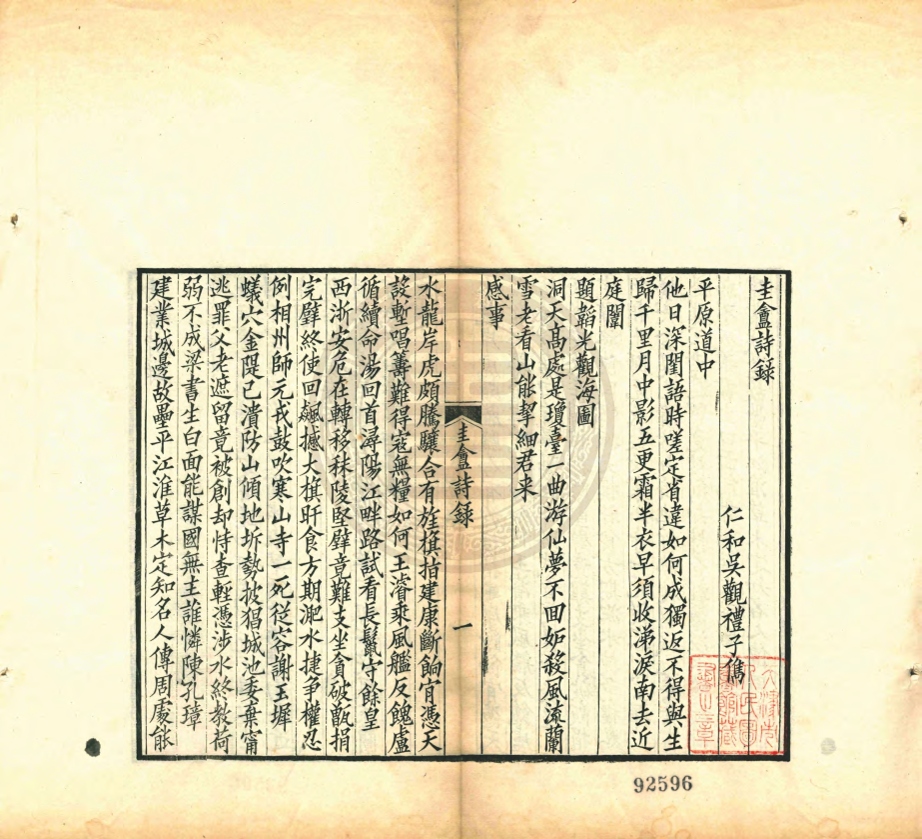 圭盦詩録
仁和吳觀禮子儁
平原道中
他日深閨語時嗟定省違如何成獨返不得與生
歸千里月中影五更霜半衣早須收涕淚南去近
庭闈
題韜光觀海圖
洞天高處是瓊臺一曲游仙夢不回如殺風流蘭
雪老看山能挈細君来
感事
水龍岸虎頗騰驤合有旌旗指建康斷餉宜憑天
設塹唱籌難得寇無糧如何王濬乘風艦反餽盧
循續命湯回首潯陽江畔路試看長鬣守餘皇
西浙安危在轉移秣陵堅壁竟難支坐貪破甑捐
完璧終使回飆撼大旗旰食方期淝水捷争權忍
例相州師元戎鼓吹寒山寺一死從容謝玉墀
蟻穴金隄已潰防山傾地坼勢披猖城池委棄甯
逃罪父老遮留竟被創却恃查輕憑涉水終教荷
弱不成梁書生白面能謀國無主誰憐陳孔璋
建業城邊故壘平江淮草木定知名人傳周處能
圭盦詩録
一
天津市人民圖書館藏書之章
92596